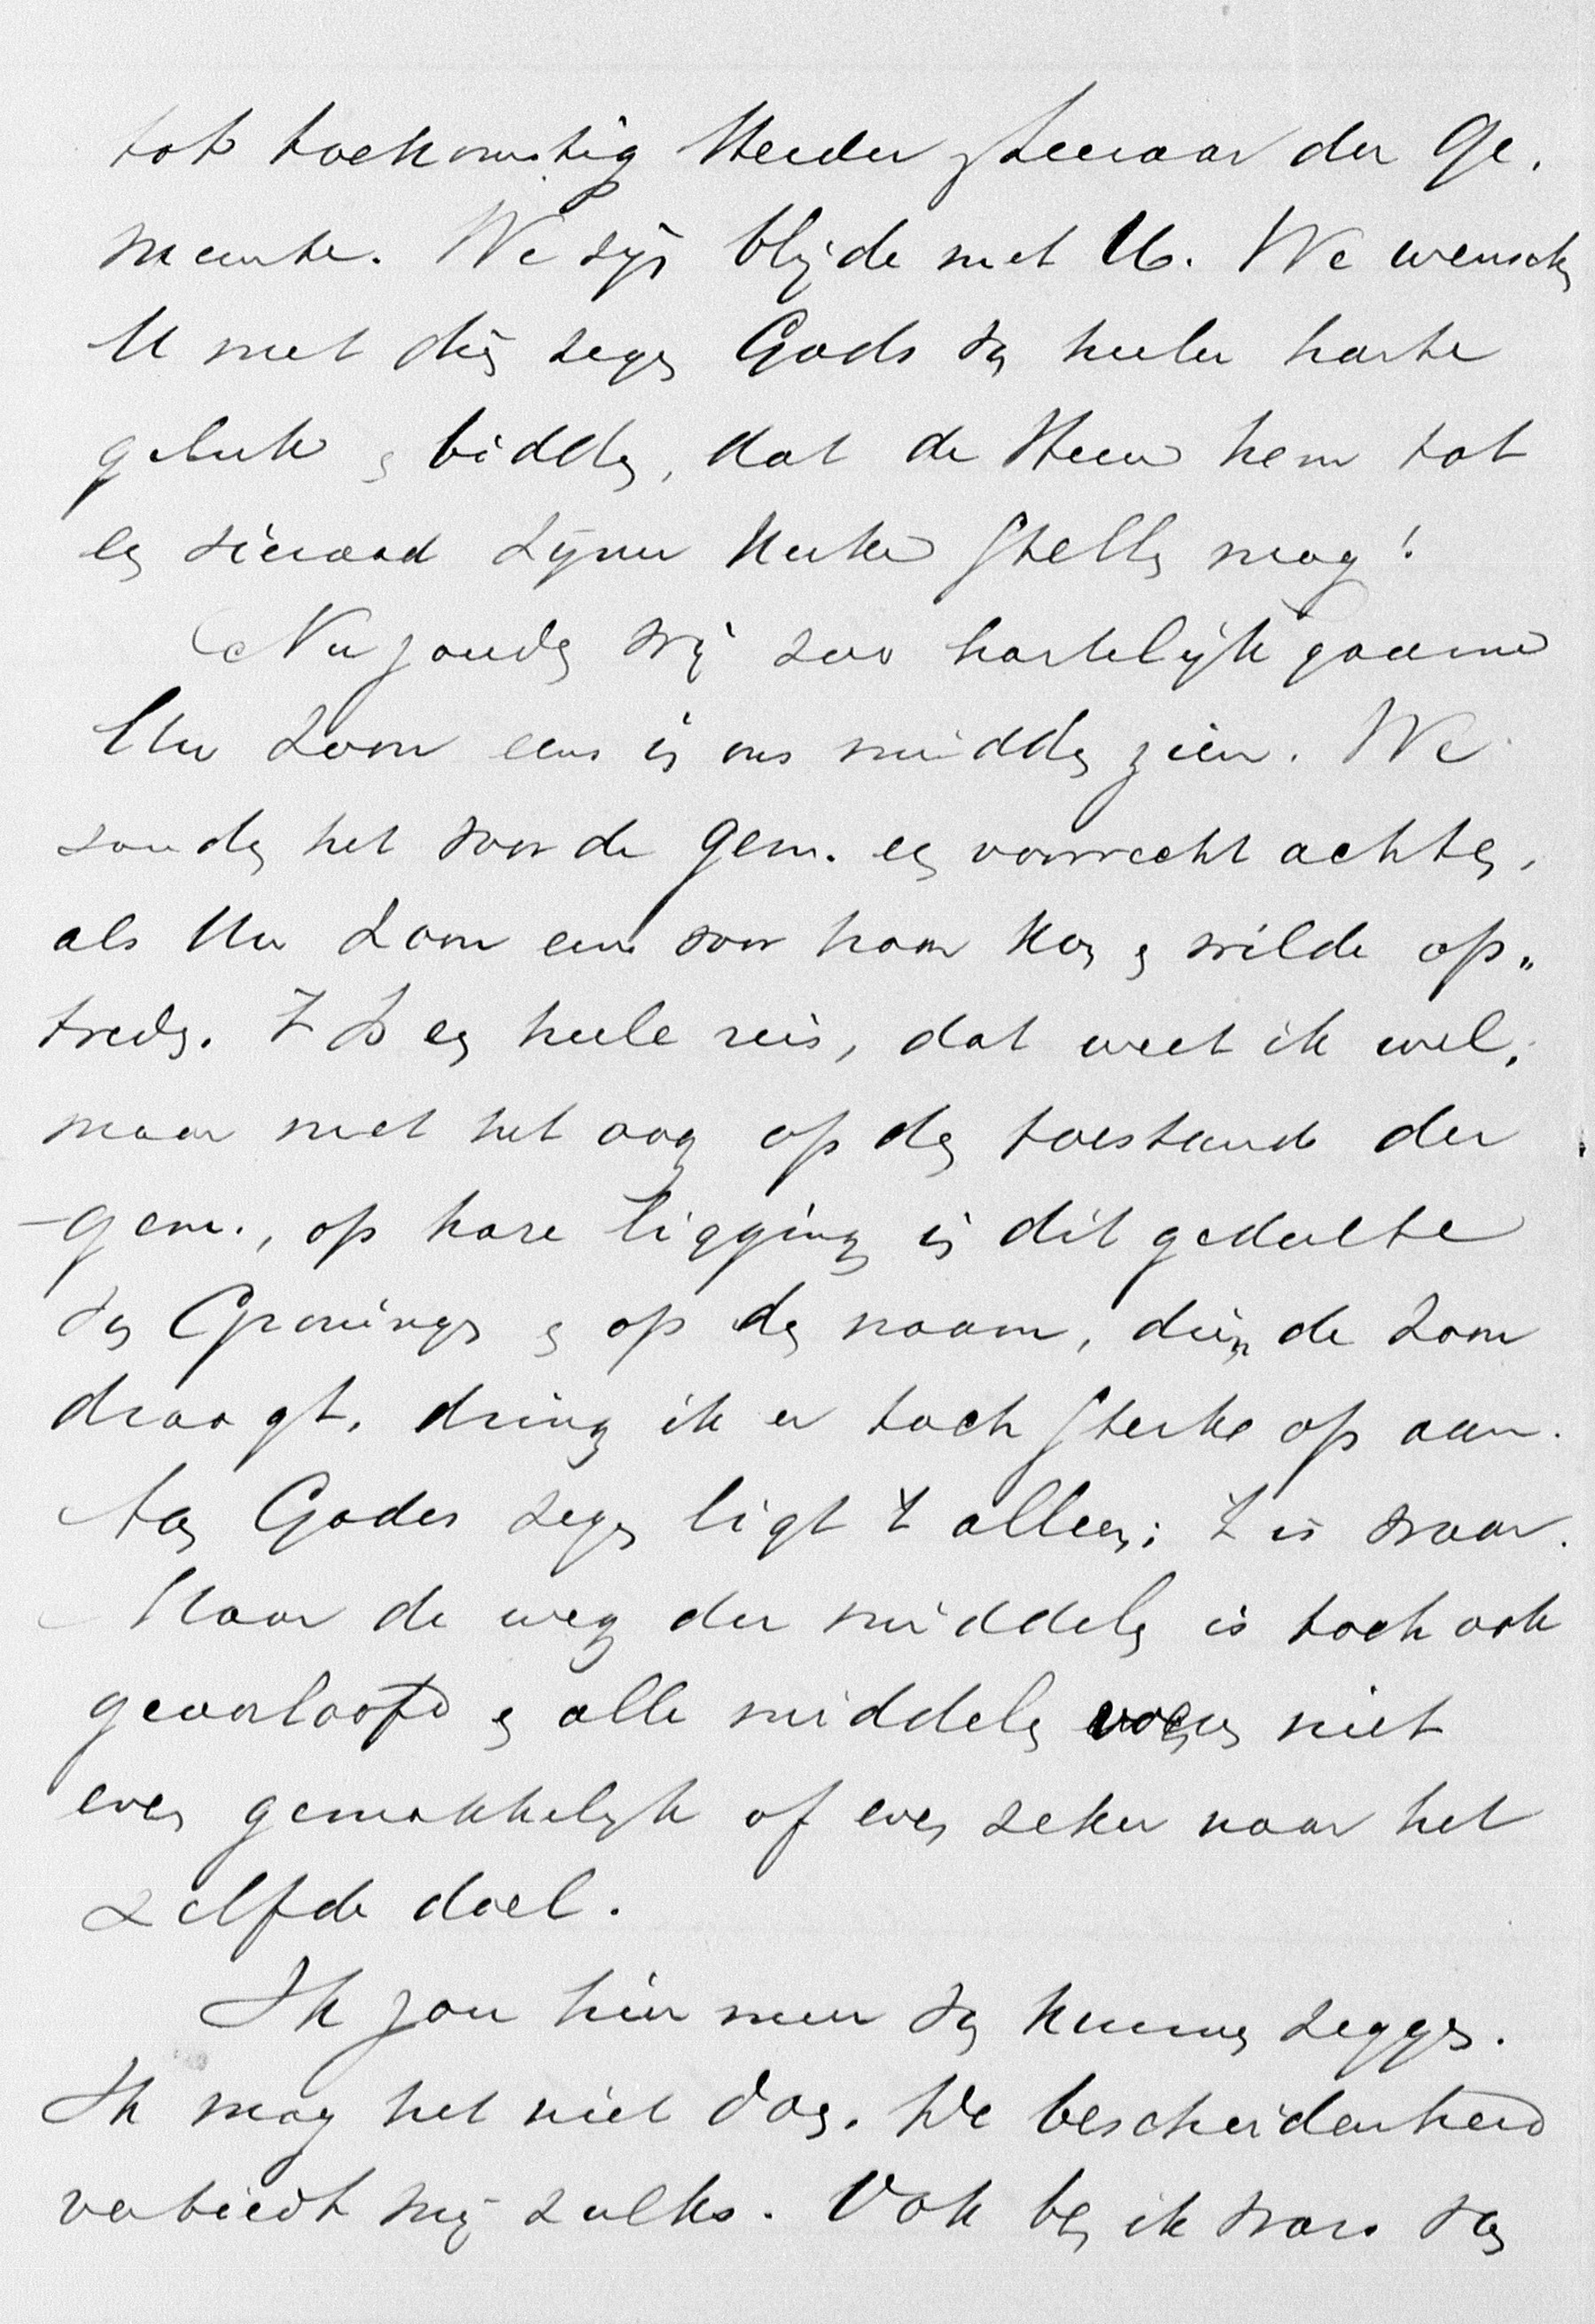 tot toekomstig Herder & Leeraar der Ge-
meente. We zijn blijde met U. We wenschen
U met dien zegen Gods van heeler harte
geluk en bidden, dat de Heer hem tot
een sieraad zijner Kerke stellen mog!
Nu zouden wij zoo hartelijk gaarne
Uw zoon eens in ons midden zien. We
zouden het voor de gem. een voorrecht achten,
als Uw zoon eens voor haar kon en wilde op„
treden. 't Is een heele reis, dat weet ik wel;
maar met het oog op den toestand der
gem., op hare ligging in dit gedeelte
van Groningen en op den naam, dien de zoon
draagt, dring ik er toch sterke op aan.
Aan Godes zegen ligt 't alleen; 't is waar.
Maar de weg der middelen is toch ook
geoorloofd en alle middelen voeren niet
even gemakkelijk of even zeker naar het
zelfde doel.
Ik zou hier meer van kunnen zeggen.
Ik mag het niet doen. De bescheidenheid
verbiedt mij zulks. Ook ben ik wars van